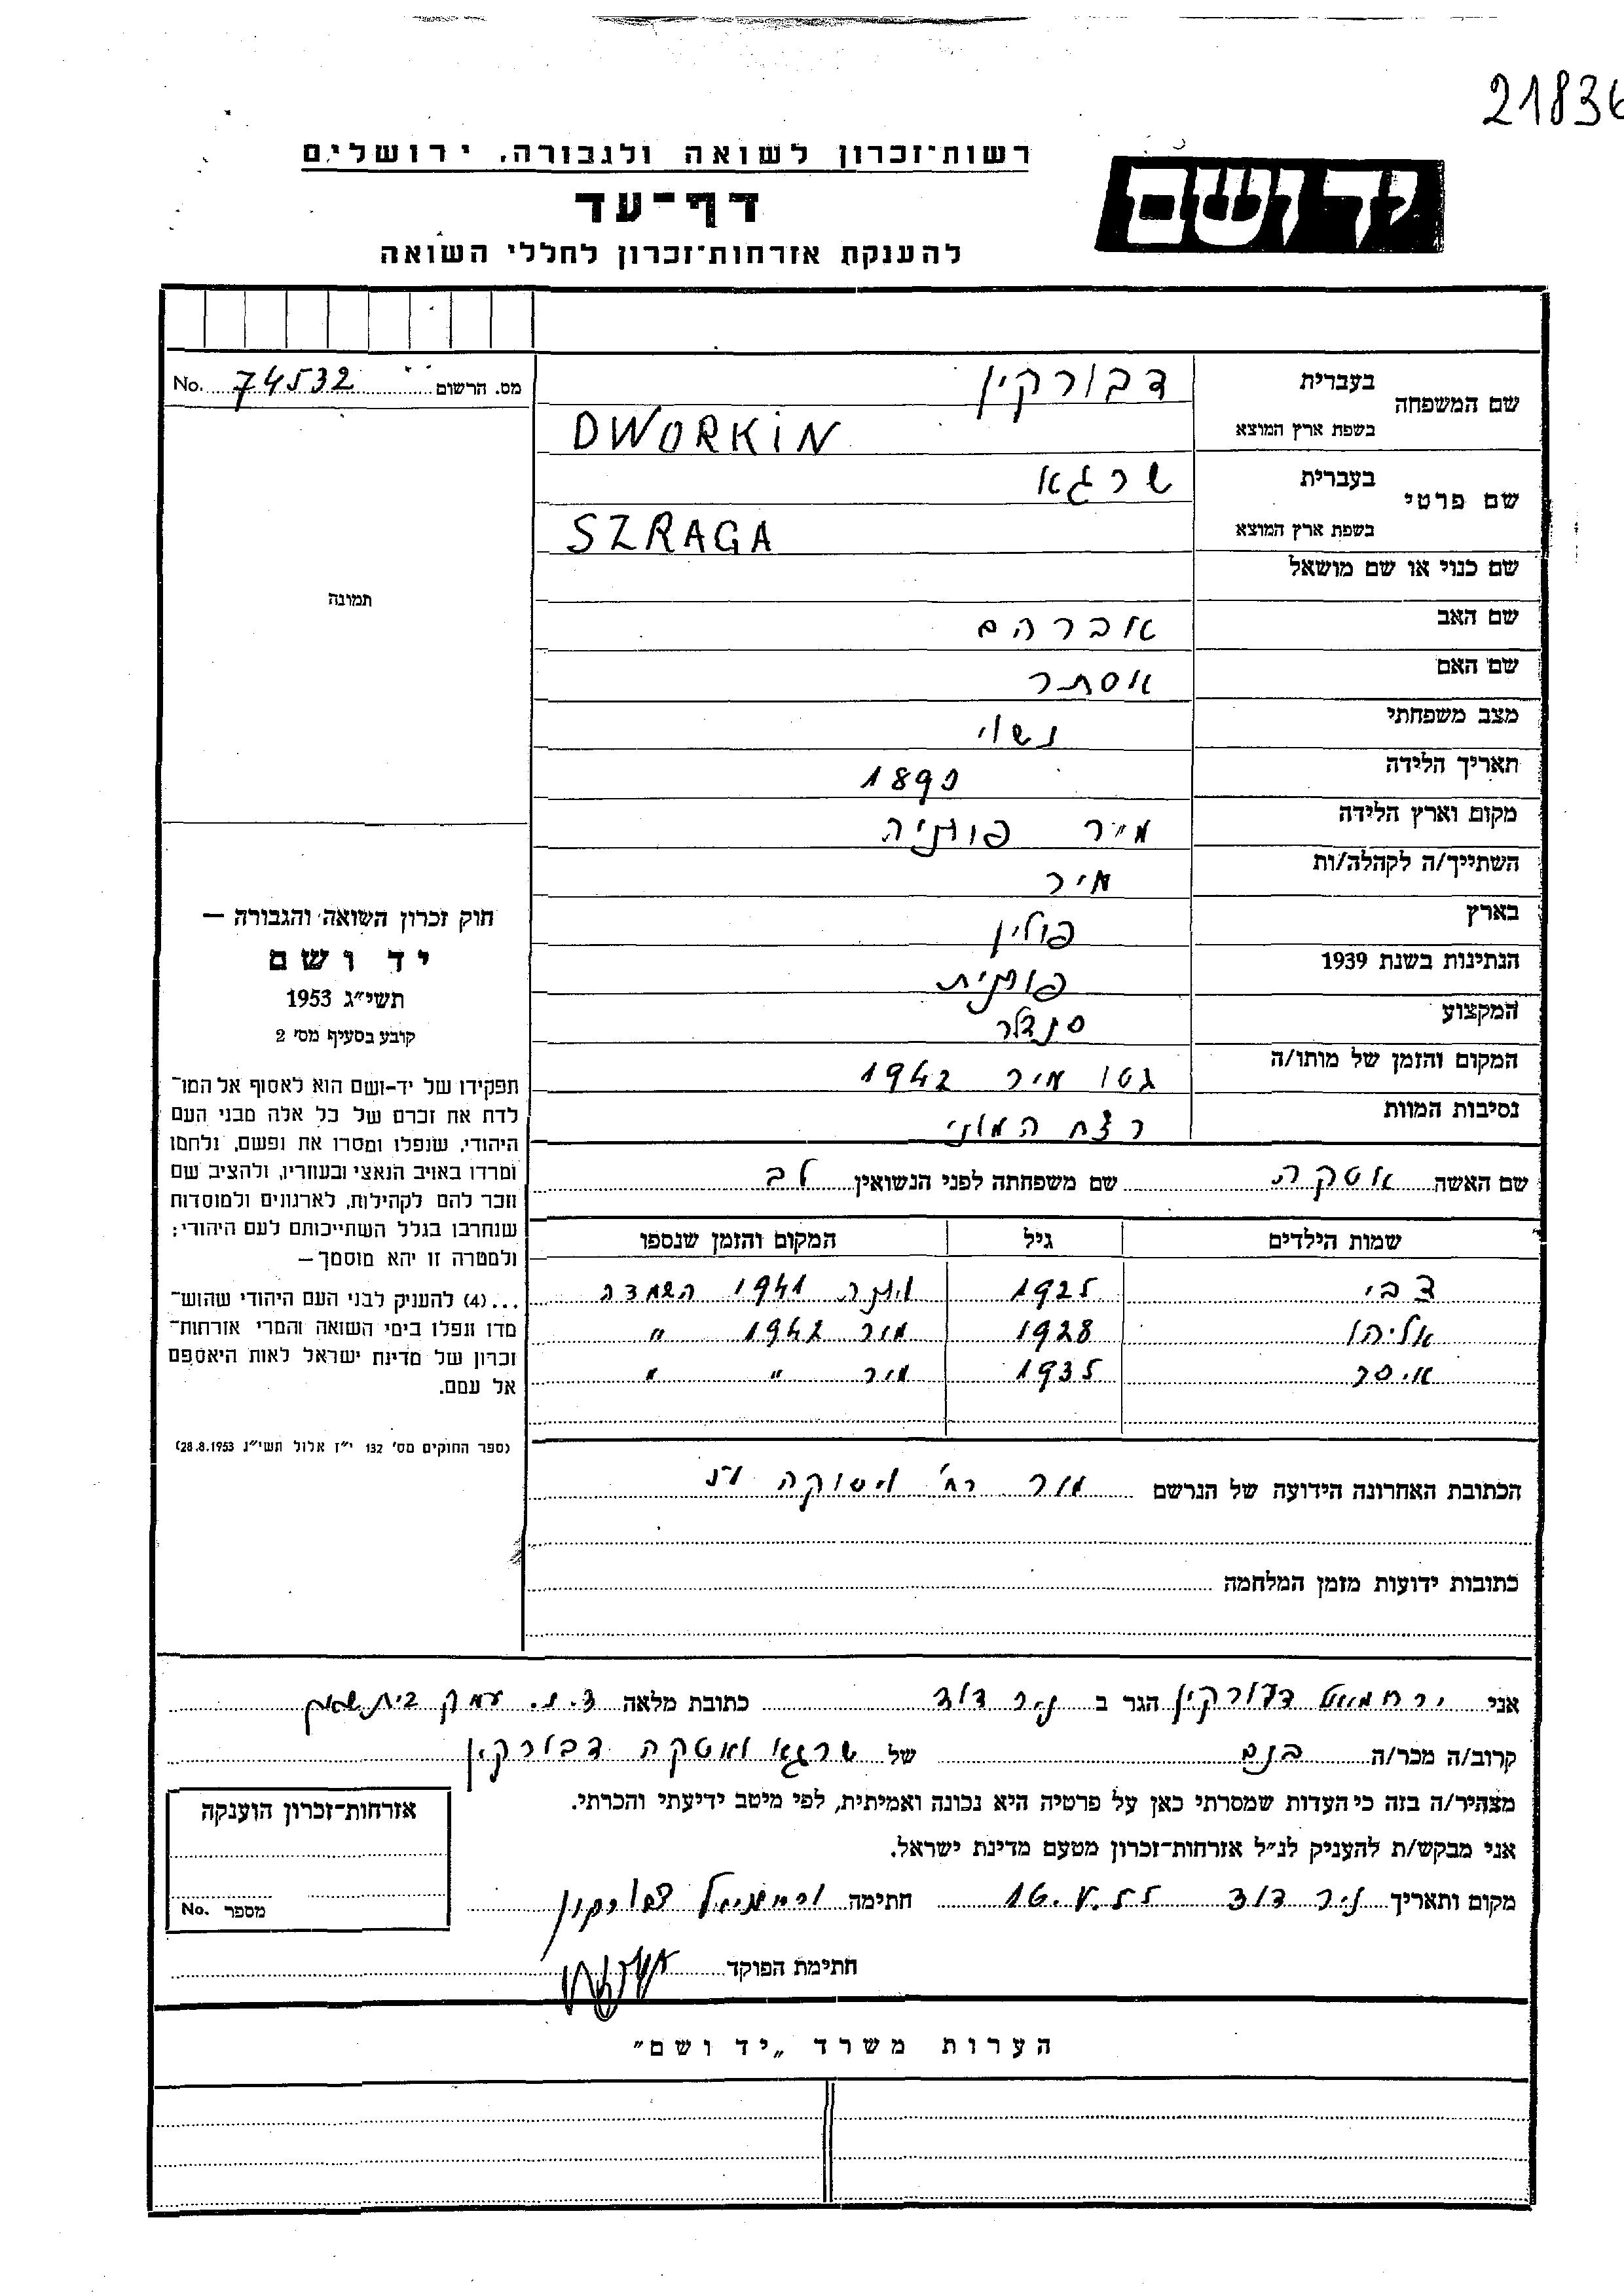 21836
יד ושם
רשות־זכרון לשואה ולגבורה, ירושלים
דף־עד
להענקת אזרחות־זכרון לחללי השואה
מס. הרשום 74532 No.
שם המשפחה בעברית דבורקין
בשפת ארץ המוצא DWORKIN
שם פרטי בעברית שרגא
בשפת ארץ המוצא SZRAGA
שם כנוי או שם מושאל
תמונה
שם האב אברהם
שם האם אסתר
מצב משפחתי נשוי
תאריך הלידה 1890
מקום וארץ הלידה מיר פולניה
השתייך/ה לקהלה/ות מיר
בארץ פולין
הנתינות בשנת 1939 פולנית
המקצוע סנדלר
המקום והזמן של מותו/ה גטו מיר 1942
נסיבות המוות רצח המוני
שם האשה אטקה שם משפחתה לפני הנשואין לב
שמות הילדים גיל המקום והזמן שנספו
צבי 1925 1941 השמדה
אליהו 1928 מיר 1942 "
איסר 1935 מיר " "
הכתובת האחרונה הידועה של הנרשם מיר רח'
כתובות ידועות מזמן המלחמה
חוק זכרון השואה והגבורה —
יד ושם
תשי״ג 1953
קובע בסעיף מס׳ 2
תפקידו של יד-ושם הוא לאסוף אל המו־
לדת את זכרם של כל אלה מבני העם
היהודי, שנפלו ומסרו את נפשם, נלחמו
ומרדו באויב הנאצי ובעוזריו, ולהציב שם
וזכר להם לקהילות, לארגונים ולמוסדות
שנחרבו בגלל השתייכותם לעם היהודי;
ולמטרה זו יהא מוסמך —
...(4) להעניק לבני העם היהודי שהוש־
מדו ונפלו בימי השואה והמרי אזרחות־
זכרון של מדינת ישראל לאות היאספם
אל עמם.
(ספר החוקים מס׳ 132 י״ז אלול תשי״ג 28.8.1953)
אני ירחמיאל דבורקין הגר ב ניר דוד כתובת מלאה ד.נ. עמק בית שאן
קרוב/ה מכר/ה בנם של שרגא ואטקה דבורקין
מצהיר/ה בזה כי העדות שמסרתי כאן על פרטיה היא נכונה ואמיתית, לפי מיטב ידיעתי והכרתי.
אני מבקש/ת להעניק לנ״ל אזרחות־זכרון מטעם מדינת ישראל.
מקום ותאריך ניר דוד חתימה ירחמיאל דבורקין
חתימת הפוקד
אזרחות־זכרון הוענקה
מספר No.
הערות משרד „יד ושם״